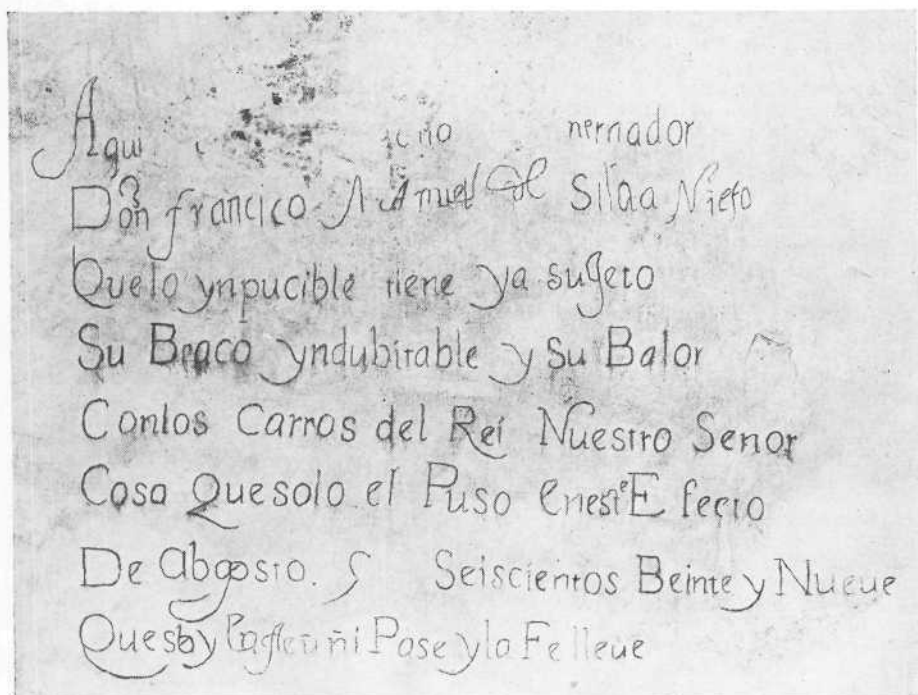 Aqui
Don francico Manuel de Silua Nieto
Quelo ynpucible tiene ya sugeto
Su Braco yndubitable y Su Balor
Conlos Carros del Rei Nuestro Senor
Cosa Quesolo el Puso Eneste Efecto
De Abgosto. Seiscientos Beinte y Nueue
Quesby a Cuñi Pase y la Fe lleue